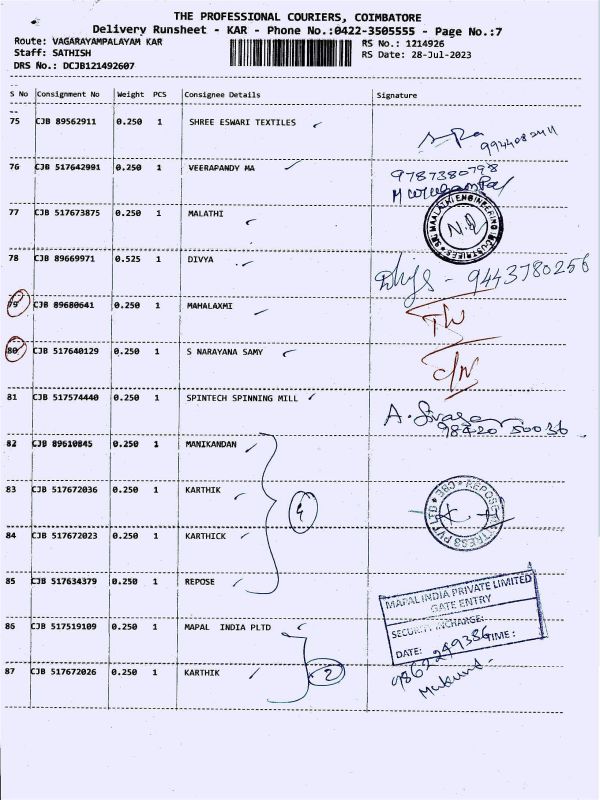 THE PROFESSIONAL COURIERS, COIMBATORE
Delivery Runsheet - KAR - Phone No.:0422-3505555 - Page No.:7
Route: VAGARAYAMPALAYAM KAR RS No.: 1214926
Staff: SATHISH RS Date: 28-Jul-2023
DRS No.: DCJB121492607
S No Consignment No Weight PCS Consignee Details Signature
75 CJB 89562911 0.250 1 SHREE ESWARI TEXTILES
76 CJB 517642991 0.250 1 VEERAPANDY MA 9787380798
77 CJB 517673875 0.250 1 MALATHI SRI MAALATHI ENGINEERING INDUSTRIES
78 CJB 89669971 0.525 1 DIVYA 9443780256
79 CJB 89680641 0.250 1 MAHALAXMI
80 CJB 517640129 0.250 1 S NARAYANA SAMY
81 CJB 517574440 0.250 1 SPINTECH SPINNING MILL
82 CJB 89610845 0.250 1 MANIKANDAN
83 CJB 517672036 0.250 1 KARTHIK
84 CJB 517672023 0.250 1 KARTHICK
85 CJB 517634379 0.250 1 REPOSE
MAPAL INDIA PRIVATE LIMITED
GATE ENTRY
86 CJB 517519109 0.250 1 MAPAL INDIA PLTD
SECURITY INCHARGE:
DATE: TIME:
87 CJB 517672026 0.250 1 KARTHIK 2
Mukund